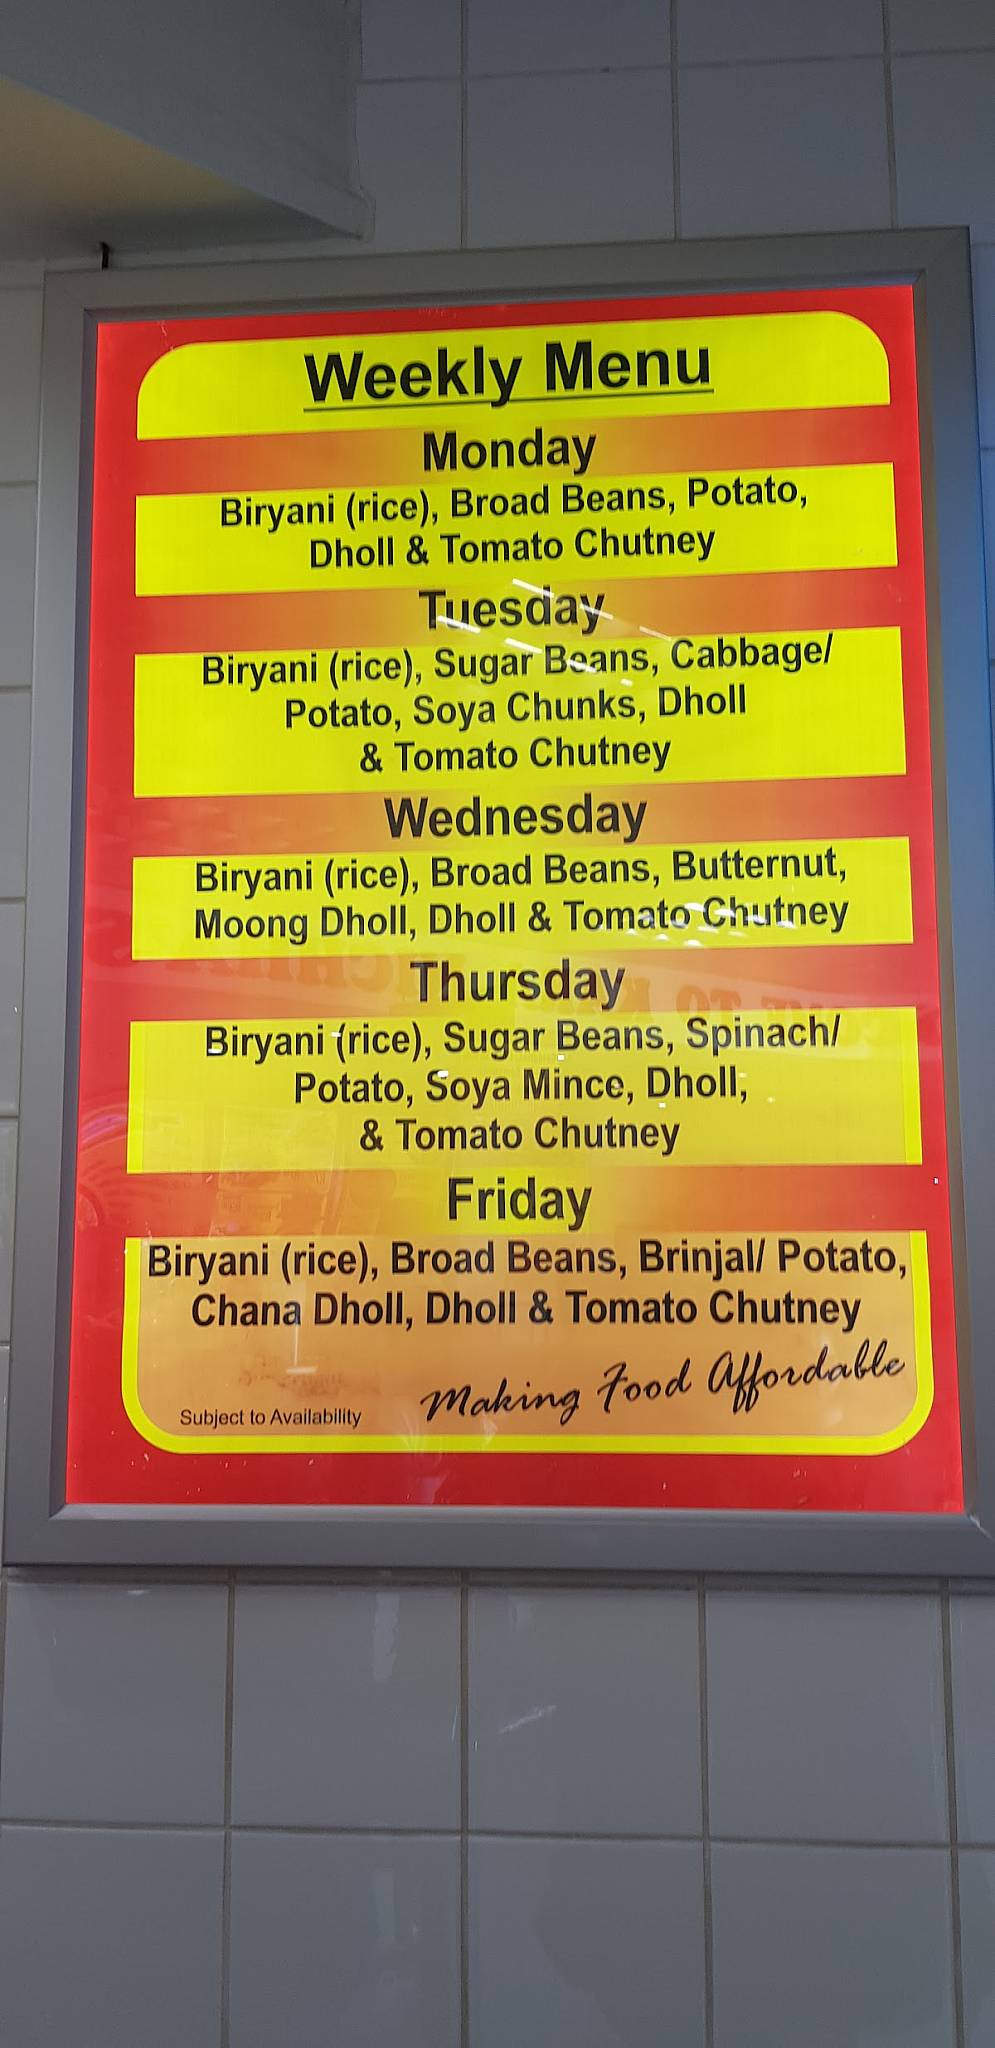 Weekly Menu
Monday
Biryani (rice), Broad Beans, Potato,
Dholl & Tomato Chutney
Tuesday
Biryani (rice), Sugar Beans, Cabbage/
Potato, Soya Chunks, Dholl
& Tomato Chutney
Wednesday
Biryani (rice), Broad Beans, Butternut,
Moong Dholl, Dholl & Tomato Chutney
Thursday
Biryani (rice), Sugar Beans, Spinach/
Potato, Soya Mince, Dholl,
& Tomato Chutney
Friday
Biryani (rice), Broad Beans, Brinjal/ Potato,
Chana Dholl, Dholl & Tomato Chutney
Making Food Affordable
Subject to Availability